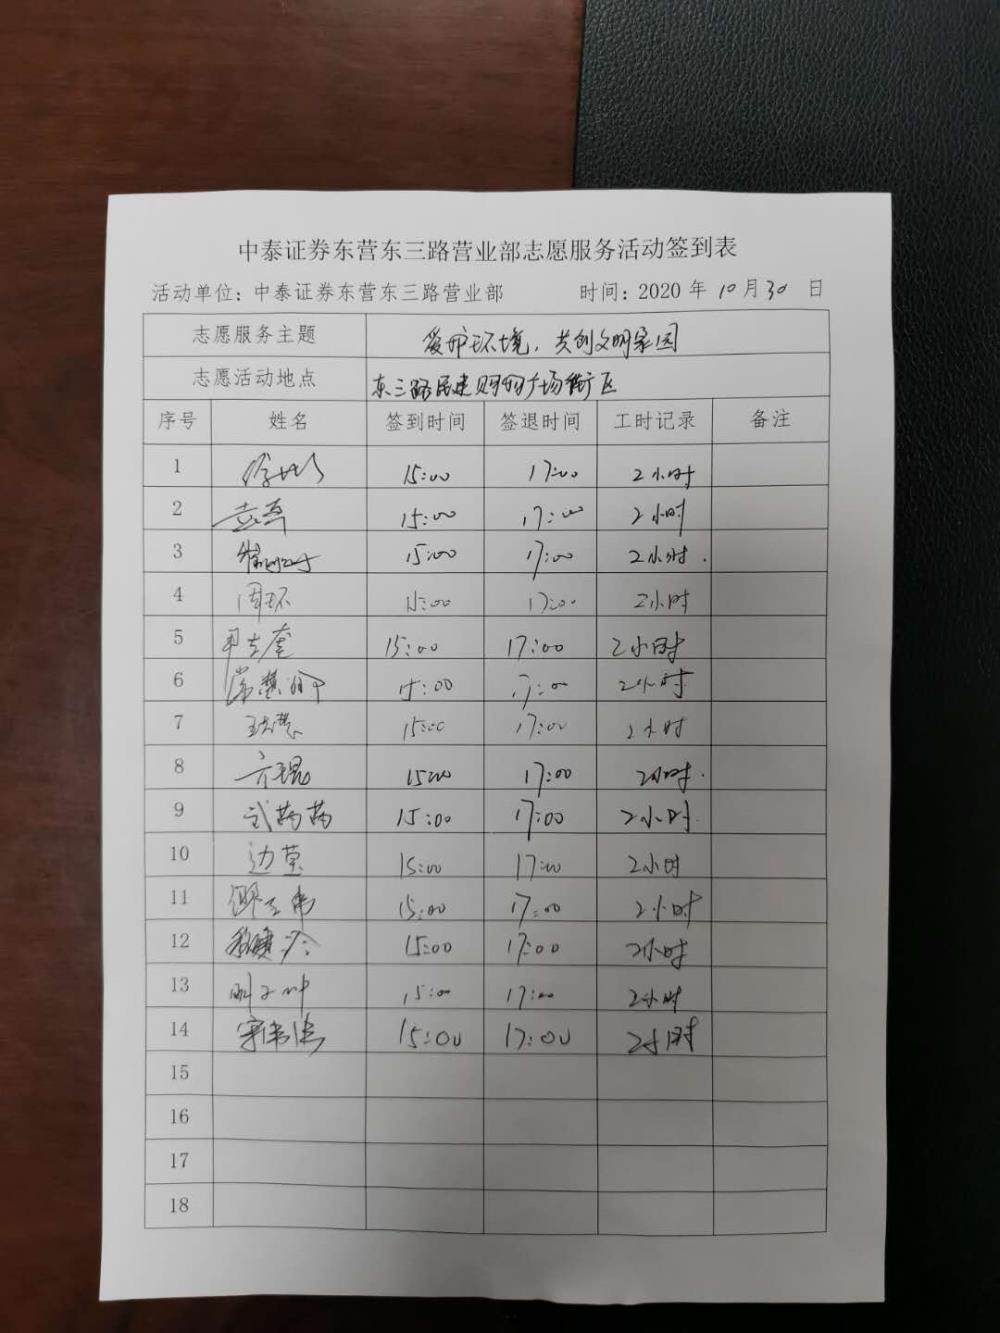 中泰证券东营东三路营业部志愿服务活动签到表
活动单位：中泰证券东营东三路营业部 时间：2020 年 10月30 日
志愿服务主题 爱护环境，共创文明家园
志愿活动地点 东三路民建购物广场街区
序号 姓名 签到时间 签退时间 工时记录 备注
1 15:00 17:00 2小时
2 15:00 17:00 2小时
3 15:00 17:00 2小时.
4 周环 15:00 17:00 2小时
5 15:00 17:00 2小时
6 15:00 17:00 2小时
7 15:00 17:00 2小时
8 15:00 17:00 2小时.
9 武茜茜 15:00 17:00 2小时.
10 边莹 15:00 17:00 2小时
11 15:00 17:00 2小时
12 15:00 17:00 2小时
13 15:00 17:00 2小时
14 15:00 17:00 2小时
15
16
17
18